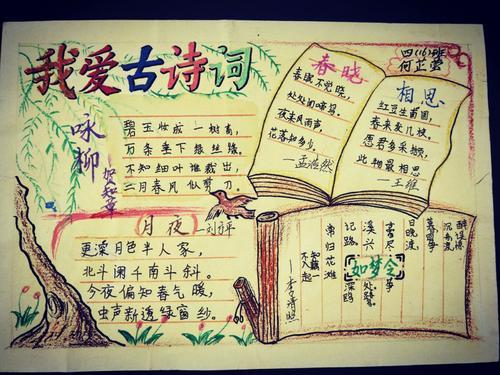 我爱古诗词
四(16)班
何芷莹
咏柳
贺知章
碧玉妆成一树高,
万条垂下绿丝绦。
不知细叶谁裁出,
二月春风似剪刀。
春晓
春眠不觉晓,
处处闻啼鸟。
夜来风雨声,
花落知多少。
—孟浩然
相思
红豆生南国,
春来发几枝,
愿君多采撷,
此物最相思
—王维
月夜
—刘方平
更深月色半人家,
北斗阑干南斗斜。
今夜偏知春气暖,
虫声新透绿窗纱。
如梦令
常归花滩
—李清照